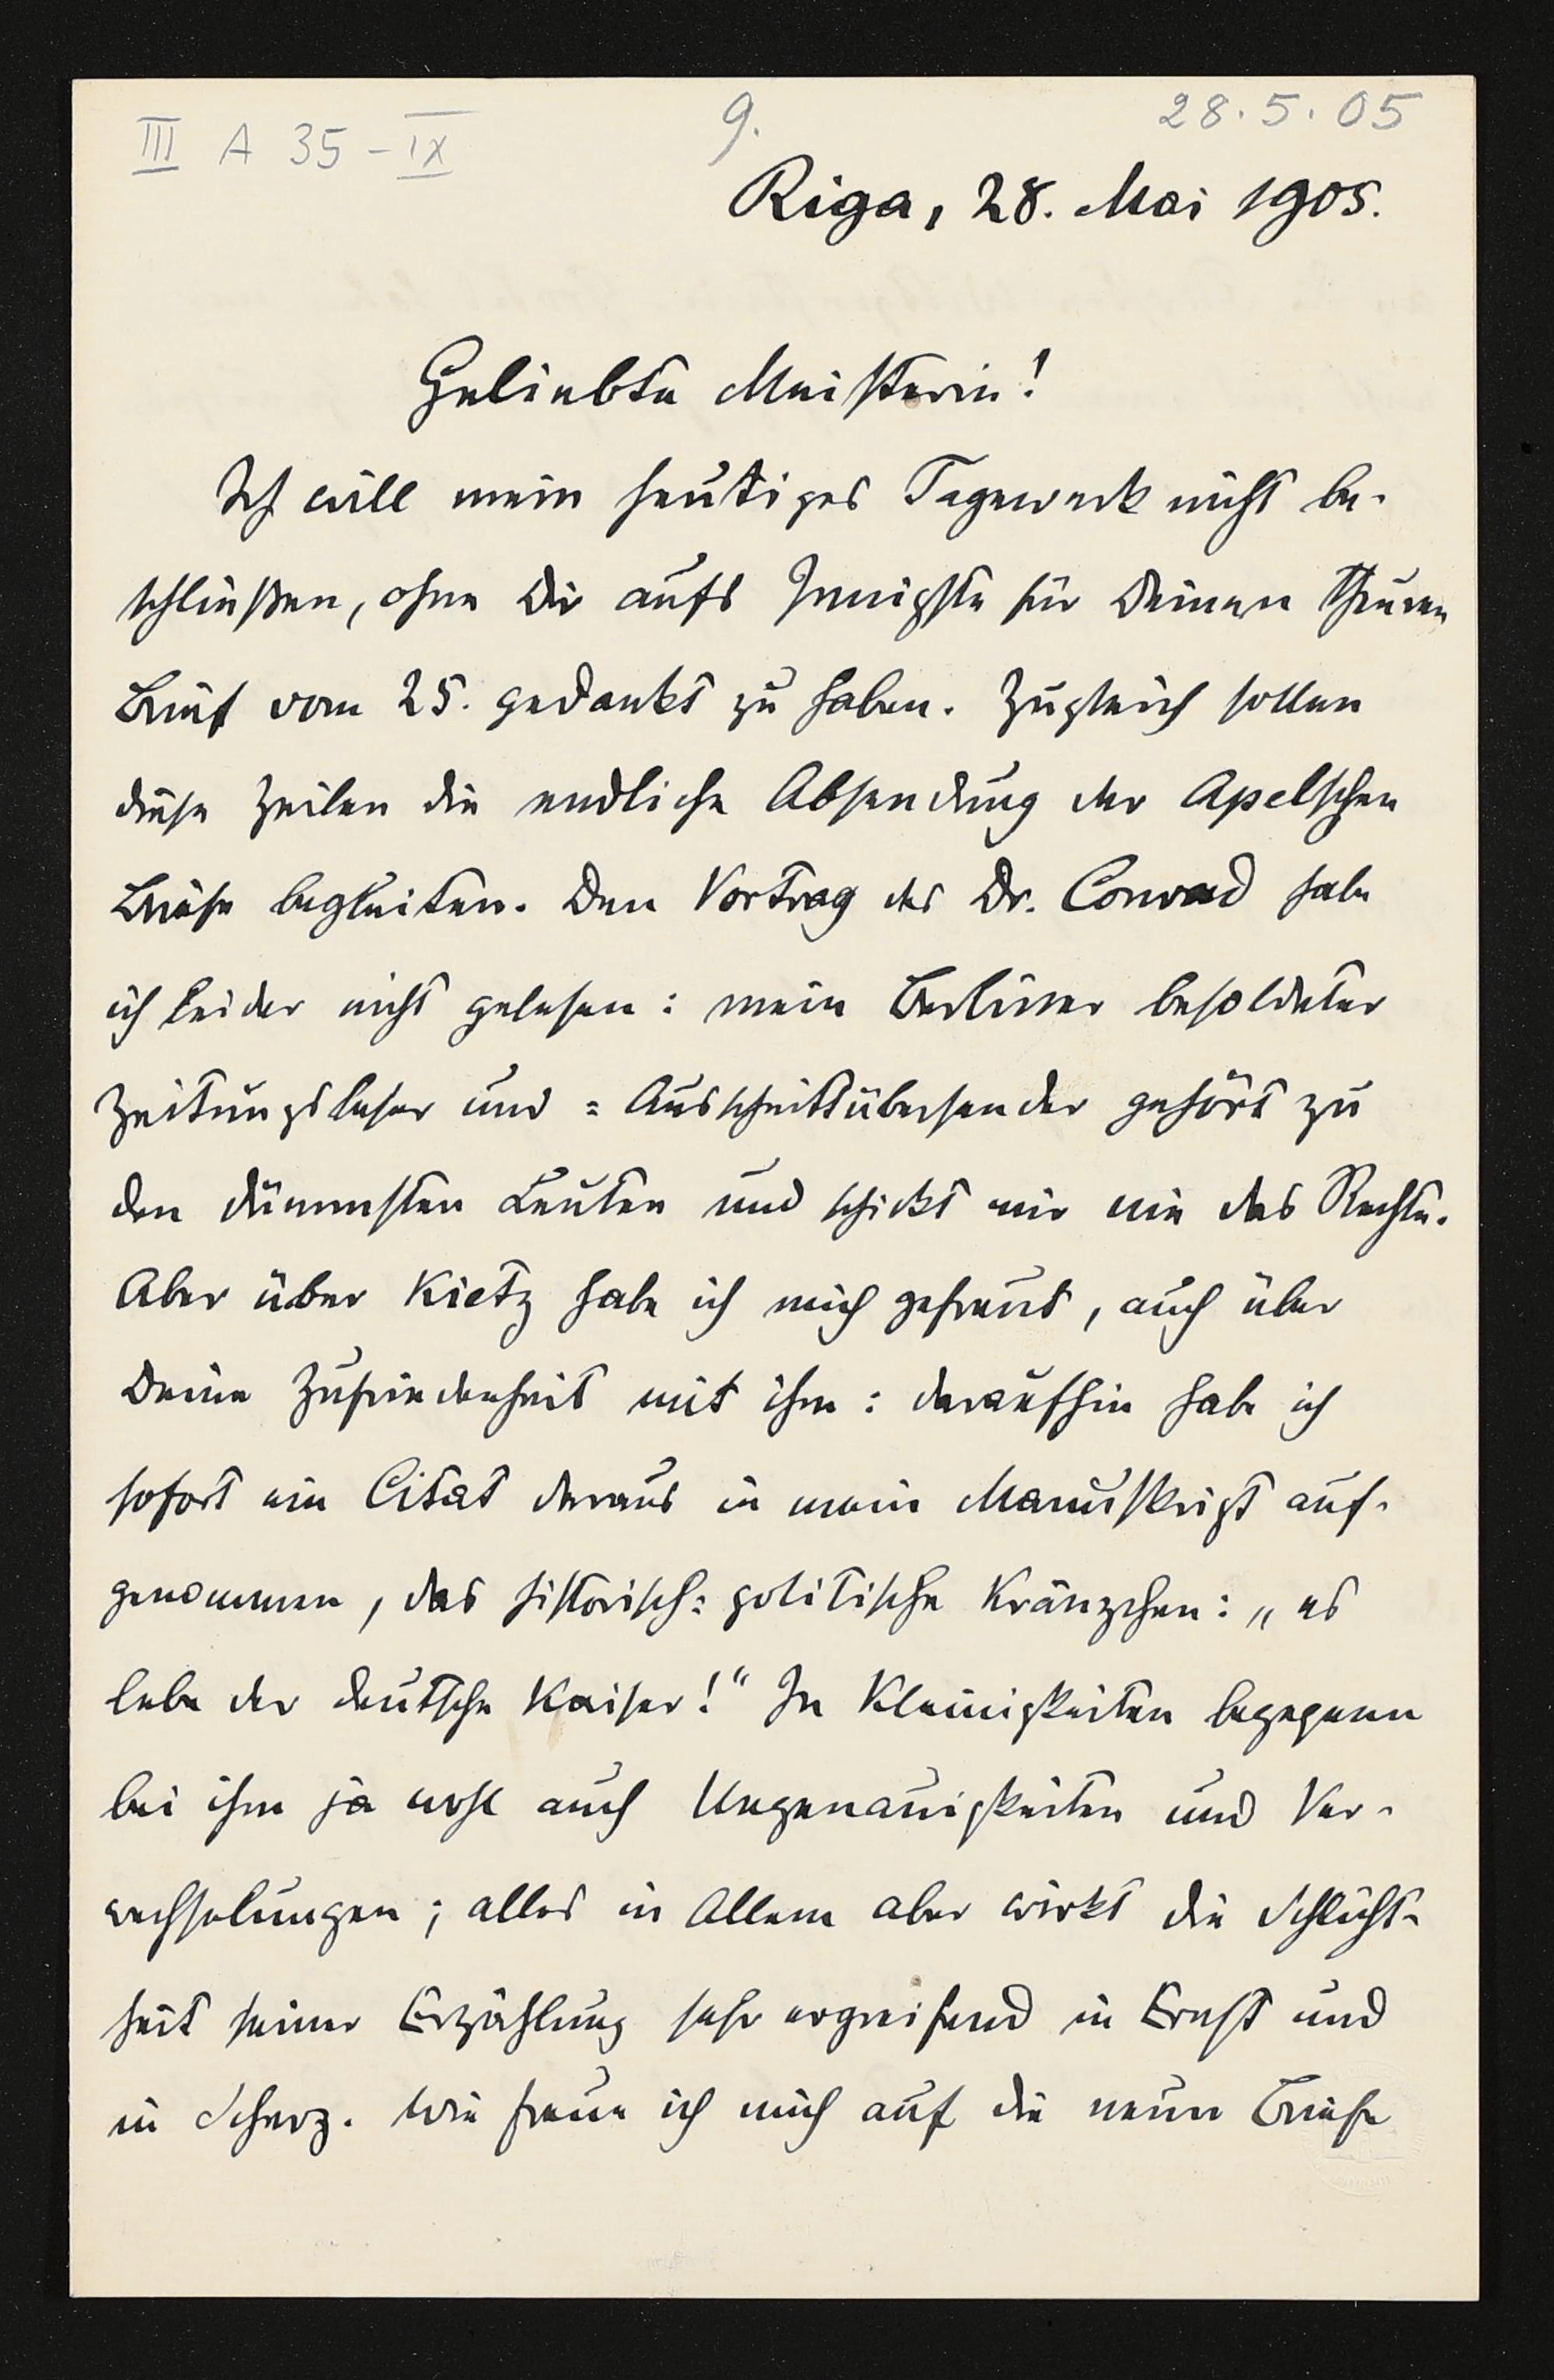 III A 35-IX
9.
28.5.05
Riga, 28. Mai 1905.
Geliebte Meisterin!
Ich will mein heutiges Tagewerk nicht be-
schließen, ohne Dir aufs Innigste für Deinen theuren
Brief vom 25. gedankt zu haben. Zugleich sollen
diese Zeilen die endliche Absendung der Apelschen
Briefe begleiten. Den Vortrag des Dr. Conrad habe
ich leider nicht gelesen: mein Berliner besoldeter
Zeitungsleser und =Ausschnittübersender gehört zu
den dümmsten Leuten und schickt mir nie das Rechte.
Aber über Kietz habe ich mich gefreut, auch über
Deine Zufriedenheit mit ihm: daraufhin habe ich
sofort ein Citat daraus in mein Manuskript auf-
genommen, das historisch=politische Kränzchen: „es
lebe der deutsche Kaiser!“ In Kleinigkeiten begegnen
bei ihm ja wohl auch Ungenauigkeiten und Ver-
wechselungen; alles in Allem aber wirkt die Schlicht-
heit seiner Erzählung sehr ergreifend in Ernst und
in Scherz. Wie freue ich mich auf die neun Briefe